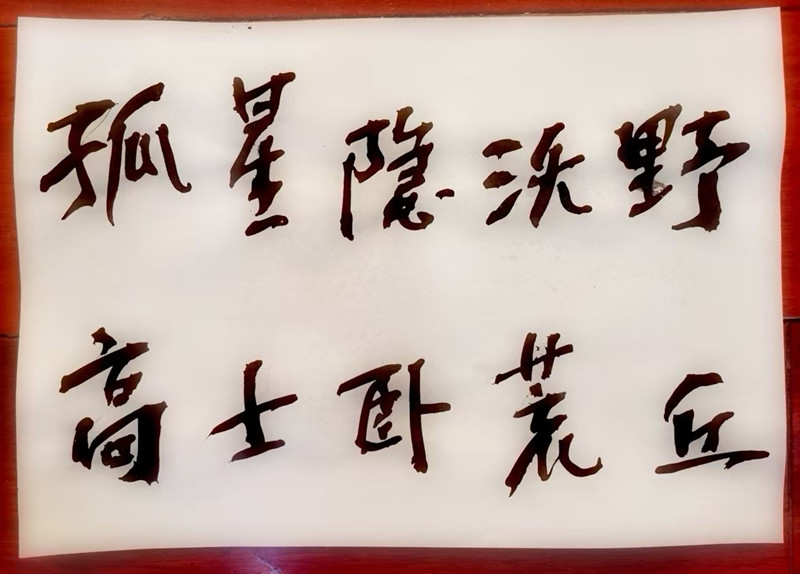 孤星隐沃野
高士卧荒丘